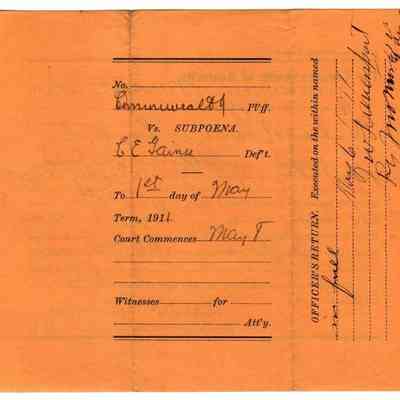 No.
Commonwealth Pl'ff.
Vs. SUBPOENA.
C E Gaines Def't.
To 1st day of May
Term, 1914
Court Commences May
Witnesses for
Att'y.
OFFICER'S RETURN. Executed on the within named
in full
May 6